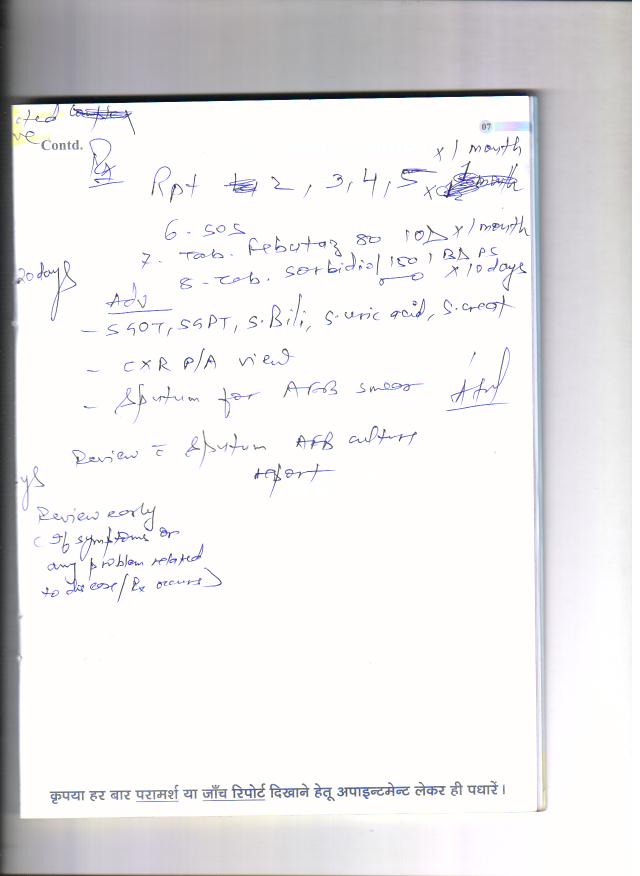 cted
ve
07
Contd.
Rx
x 1 month
Rpt 2, 3, 4, 5
6. SOS
7. Tab. Febutaz 80 1OD x 1 month
8. Tab. 150 1 BD x 10 days
20 days
Adv
- SGOT, SGPT, S. Bili, S. uric acid, S. creat
- CXR P/A view
- Sputum for AFB smear
Review c̄ Sputum AFB culture
report
ys
Review early
( If symptoms or
any problem related
to disease/Rx occurs)
कृपया हर बार परामर्श या जाँच रिपोर्ट दिखाने हेतू अपाइन्टमेन्ट लेकर ही पधारें।